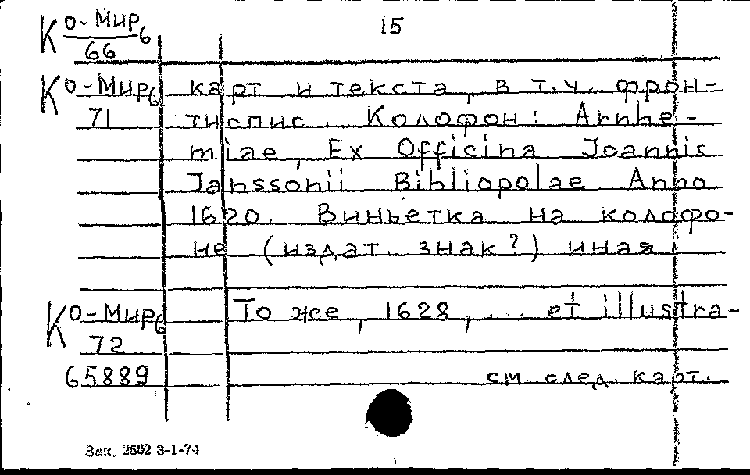 К о-Мир6 15
66
К о-Мир6 карт и текста, в т.ч. фрон-
71 тиспис. Колофон: Arnhe-
miae, Ex Officina Joannis
Janssonii Bibliopolae Anno
1620. Виньетка на колофо-
не (издат. знак?) иная
К о-Мир6 То же, 1628, ... et illustra-
72
65889 см след. карт.
Зак. 2692 3-1-74